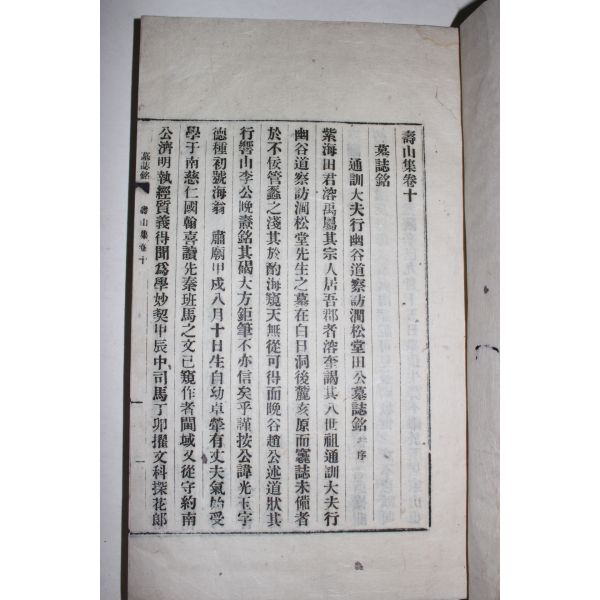 壽山集卷十
墓誌銘
通訓大夫行幽谷道察訪澗松堂田公墓誌銘 幷序
紫海田君溶禹屬其宗人居吾郡者溶奎謁其八世祖通訓大夫行
幽谷道察訪澗松堂先生之墓在白日洞後麓亥原而竁誌未備者
於不佞管蠡之淺其於酌海窺天無從可得而晩谷趙公述道狀其
行響山李公晩燾銘其碣大方鉅筆不亦信矣乎謹按公諱光玉字
德種初號海翁 肅廟甲戌八月十日生自幼卓犖有丈夫氣始受
學于南慈仁國翰喜讀先秦班馬之文已窺作者閫域又從守約南
公濟明執經質義得聞爲學妙契甲辰中司馬丁卯擢文科探花郞
墓誌銘 壽山集卷十 一